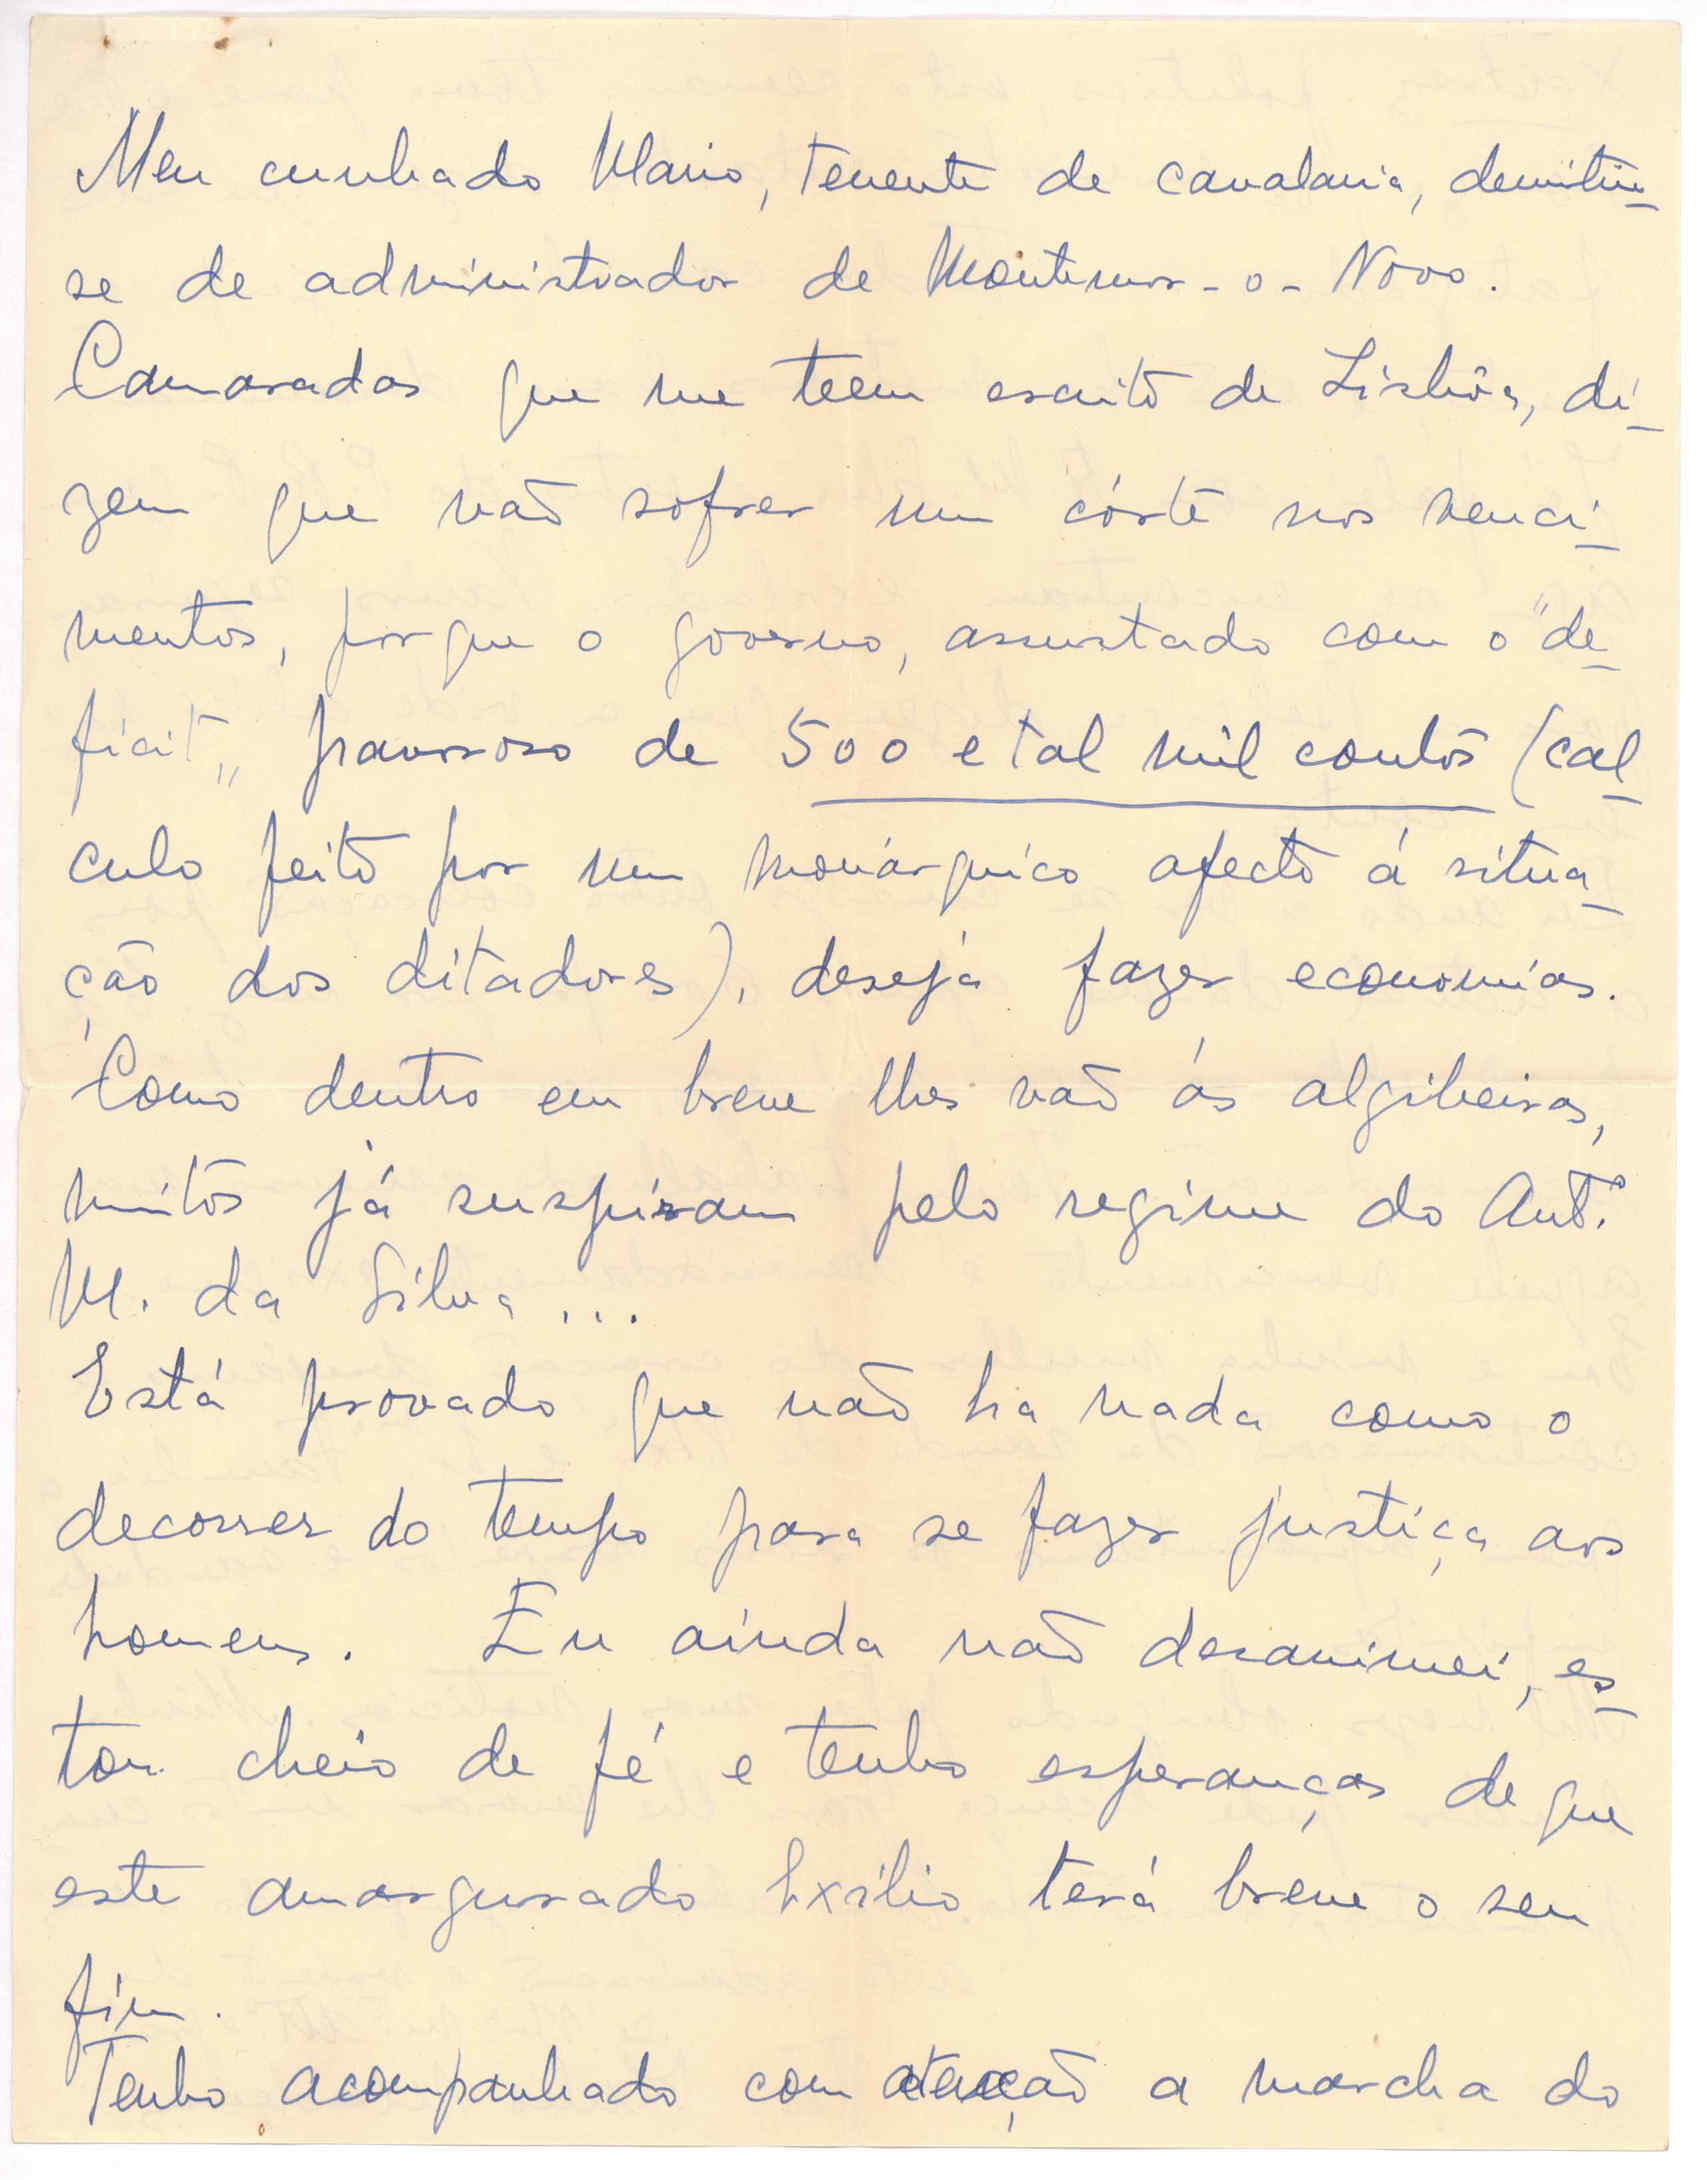 Meu cunhado Mario, tenente de cavalaria, demitiu-
se de administrador de Montemor-o-Novo.
Camaradas que me teem escrito de Lisbôa, di-
zem que vão sofrer um córte nos venci-
mentos, porque o governo, assustado com o "de-
ficit„ pavoroso de 500 e tal mil contos (cal-
culo feito por um monárquico afecto á situa-
ção dos ditadores), deseja fazer economias.
Como dentro em breve lhes vão ás algibeiras,
muitos já suspiram pelo regime do Antº
M. da Silva...
Está provado que não ha nada como o
decorrer do tempo para se fazer justiça aos
homens. Eu ainda não desanimei, es-
tou cheio de fé e tenho esperanças de que
este amargurado Exílio terá breve o seu
fim.
Tenho acompanhado com atenção a marcha do